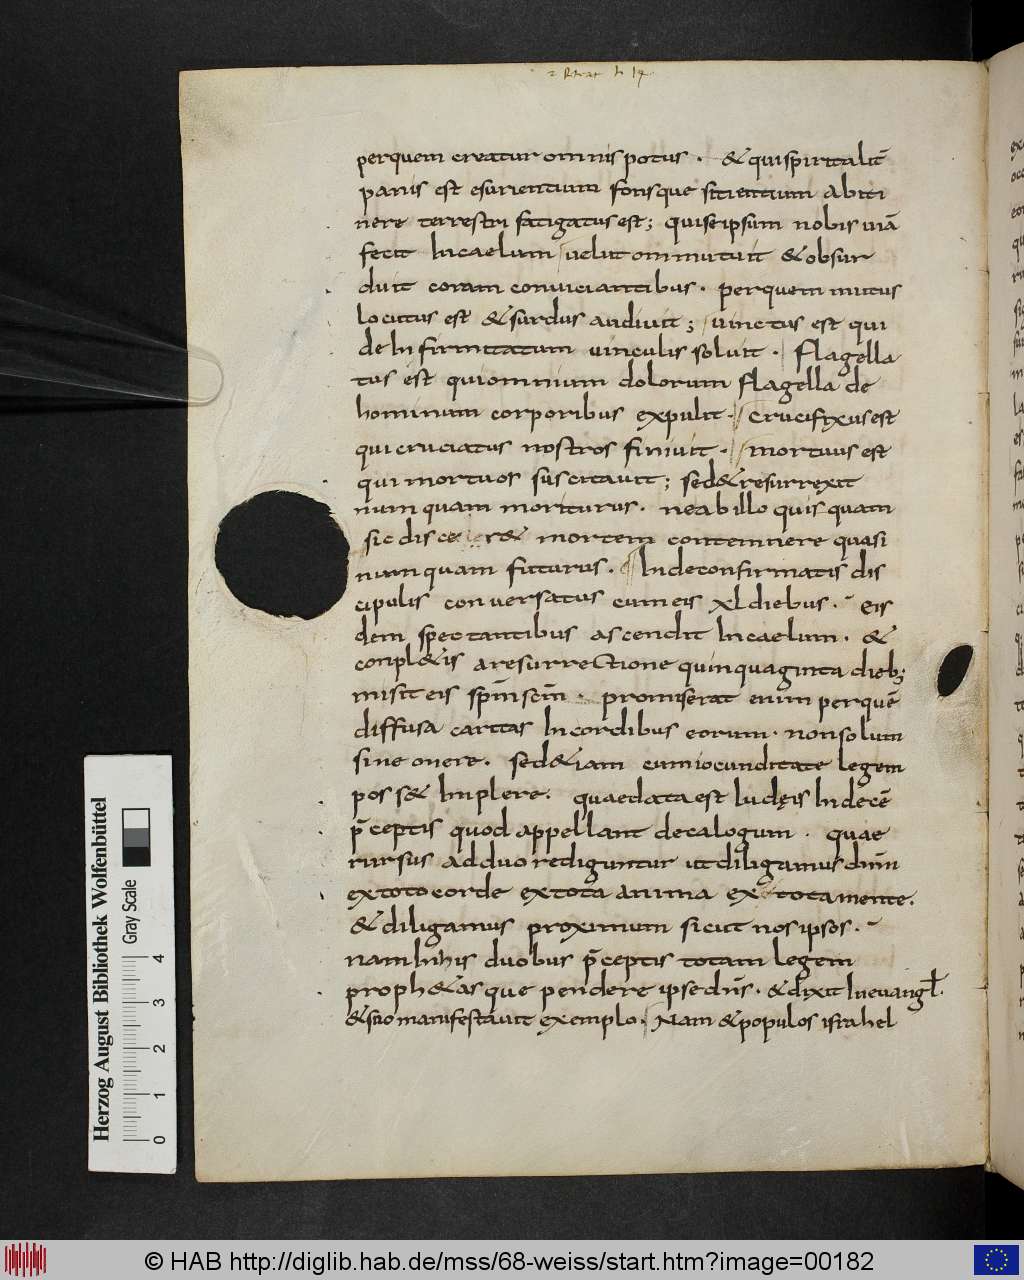 perquem creatur omnis potus . & quispiritalit̄
panis est esurientium fonsque sitientium abiti
nere terrestri fatigatus est; quiseipsum nobis uiā
fecit Incaelum uelut ommutuit & obsur
duit coram conuiciantibus . perquem mutus
locutus est & surdus audiuit ; uinctus est qui
deInfirmitatum uinculis soluit . flagella
tus est quiomnium dolorum flagella de
hominum corporibus expulit . crucifixus est
qui cruciatus nostros finiuit . mortuus est
qui mortuos suscitauit ; sed&resurrexit
numquam moriturus . neabillo quisquam
sic disce r& mortem contemnere quasi
numquam futurus . Indeconfirmatis dis
cipulis conuersatus cumeis xl diebus . eis
dem spectantibus ascendit Incaelum . &
conpl&is aresurrectione quinquaginta dieb;
misit eis sp̄m sc̄m . promiserat enim perquē
diffusa caritas Incordibus eorum . nonsolum
sine onere . sed&iam cumiocunditate legem
poss& Implere . quaedata est Iudęis Indecē
p̄ceptis quod appellant decalogum . quae
rursus adduo rediguntur ut diligamus dn̄m
extoto corde extota anima ex totamente .
& diligamus proximum sicut nosipsos .
nam Inhis duobus p̄ceptis totam legem
proph&asque pendere ipse dn̄s . &dixit Ineuangl̄ .
&suo manifestauit exemplo . Nam &populos israhel
Herzog August Bibliothek Wolfenbüttel
Gray Scale
0 1 2 3 4
© HAB http://diglib.hab.de/mss/68-weiss/start.htm?image=00182